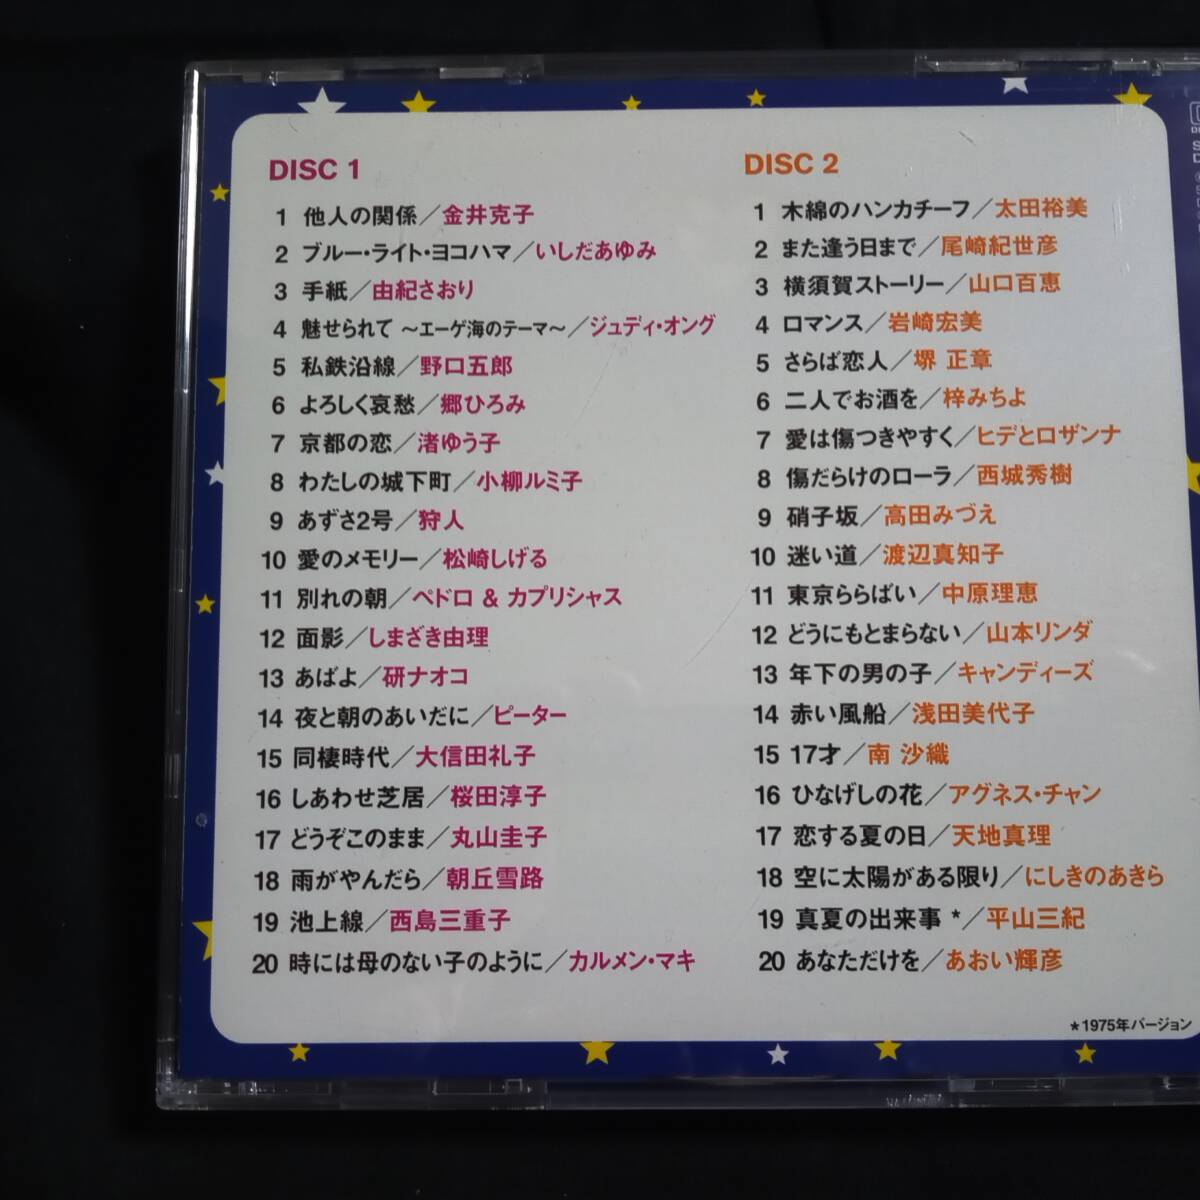 DISC 1
1 他人の関係／金井克子
2 ブルー・ライト・ヨコハマ／いしだあゆみ
3 手紙／由紀さおり
4 魅せられて ～エーゲ海のテーマ～／ジュディ・オング
5 私鉄沿線／野口五郎
6 よろしく哀愁／郷ひろみ
7 京都の恋／渚ゆう子
8 わたしの城下町／小柳ルミ子
9 あずさ2号／狩人
10 愛のメモリー／松崎しげる
11 別れの朝／ペドロ & カプリシャス
12 面影／しまざき由理
13 あばよ／研ナオコ
14 夜と朝のあいだに／ピーター
15 同棲時代／大信田礼子
16 しあわせ芝居／桜田淳子
17 どうぞこのまま／丸山圭子
18 雨がやんだら／朝丘雪路
19 池上線／西島三重子
20 時には母のない子のように／カルメン・マキ
DISC 2
1 木綿のハンカチーフ／太田裕美
2 また逢う日まで／尾崎紀世彦
3 横須賀ストーリー／山口百恵
4 ロマンス／岩崎宏美
5 さらば恋人／堺 正章
6 二人でお酒を／梓みちよ
7 愛は傷つきやすく／ヒデとロザンナ
8 傷だらけのローラ／西城秀樹
9 硝子坂／高田みづえ
10 迷い道／渡辺真知子
11 東京ららばい／中原理恵
12 どうにもとまらない／山本リンダ
13 年下の男の子／キャンディーズ
14 赤い風船／浅田美代子
15 17才／南 沙織
16 ひなげしの花／アグネス・チャン
17 恋する夏の日／天地真理
18 空に太陽がある限り／にしきのあきら
19 真夏の出来事 *／平山三紀
20 あなただけを／あおい輝彦
*1975年バージョン